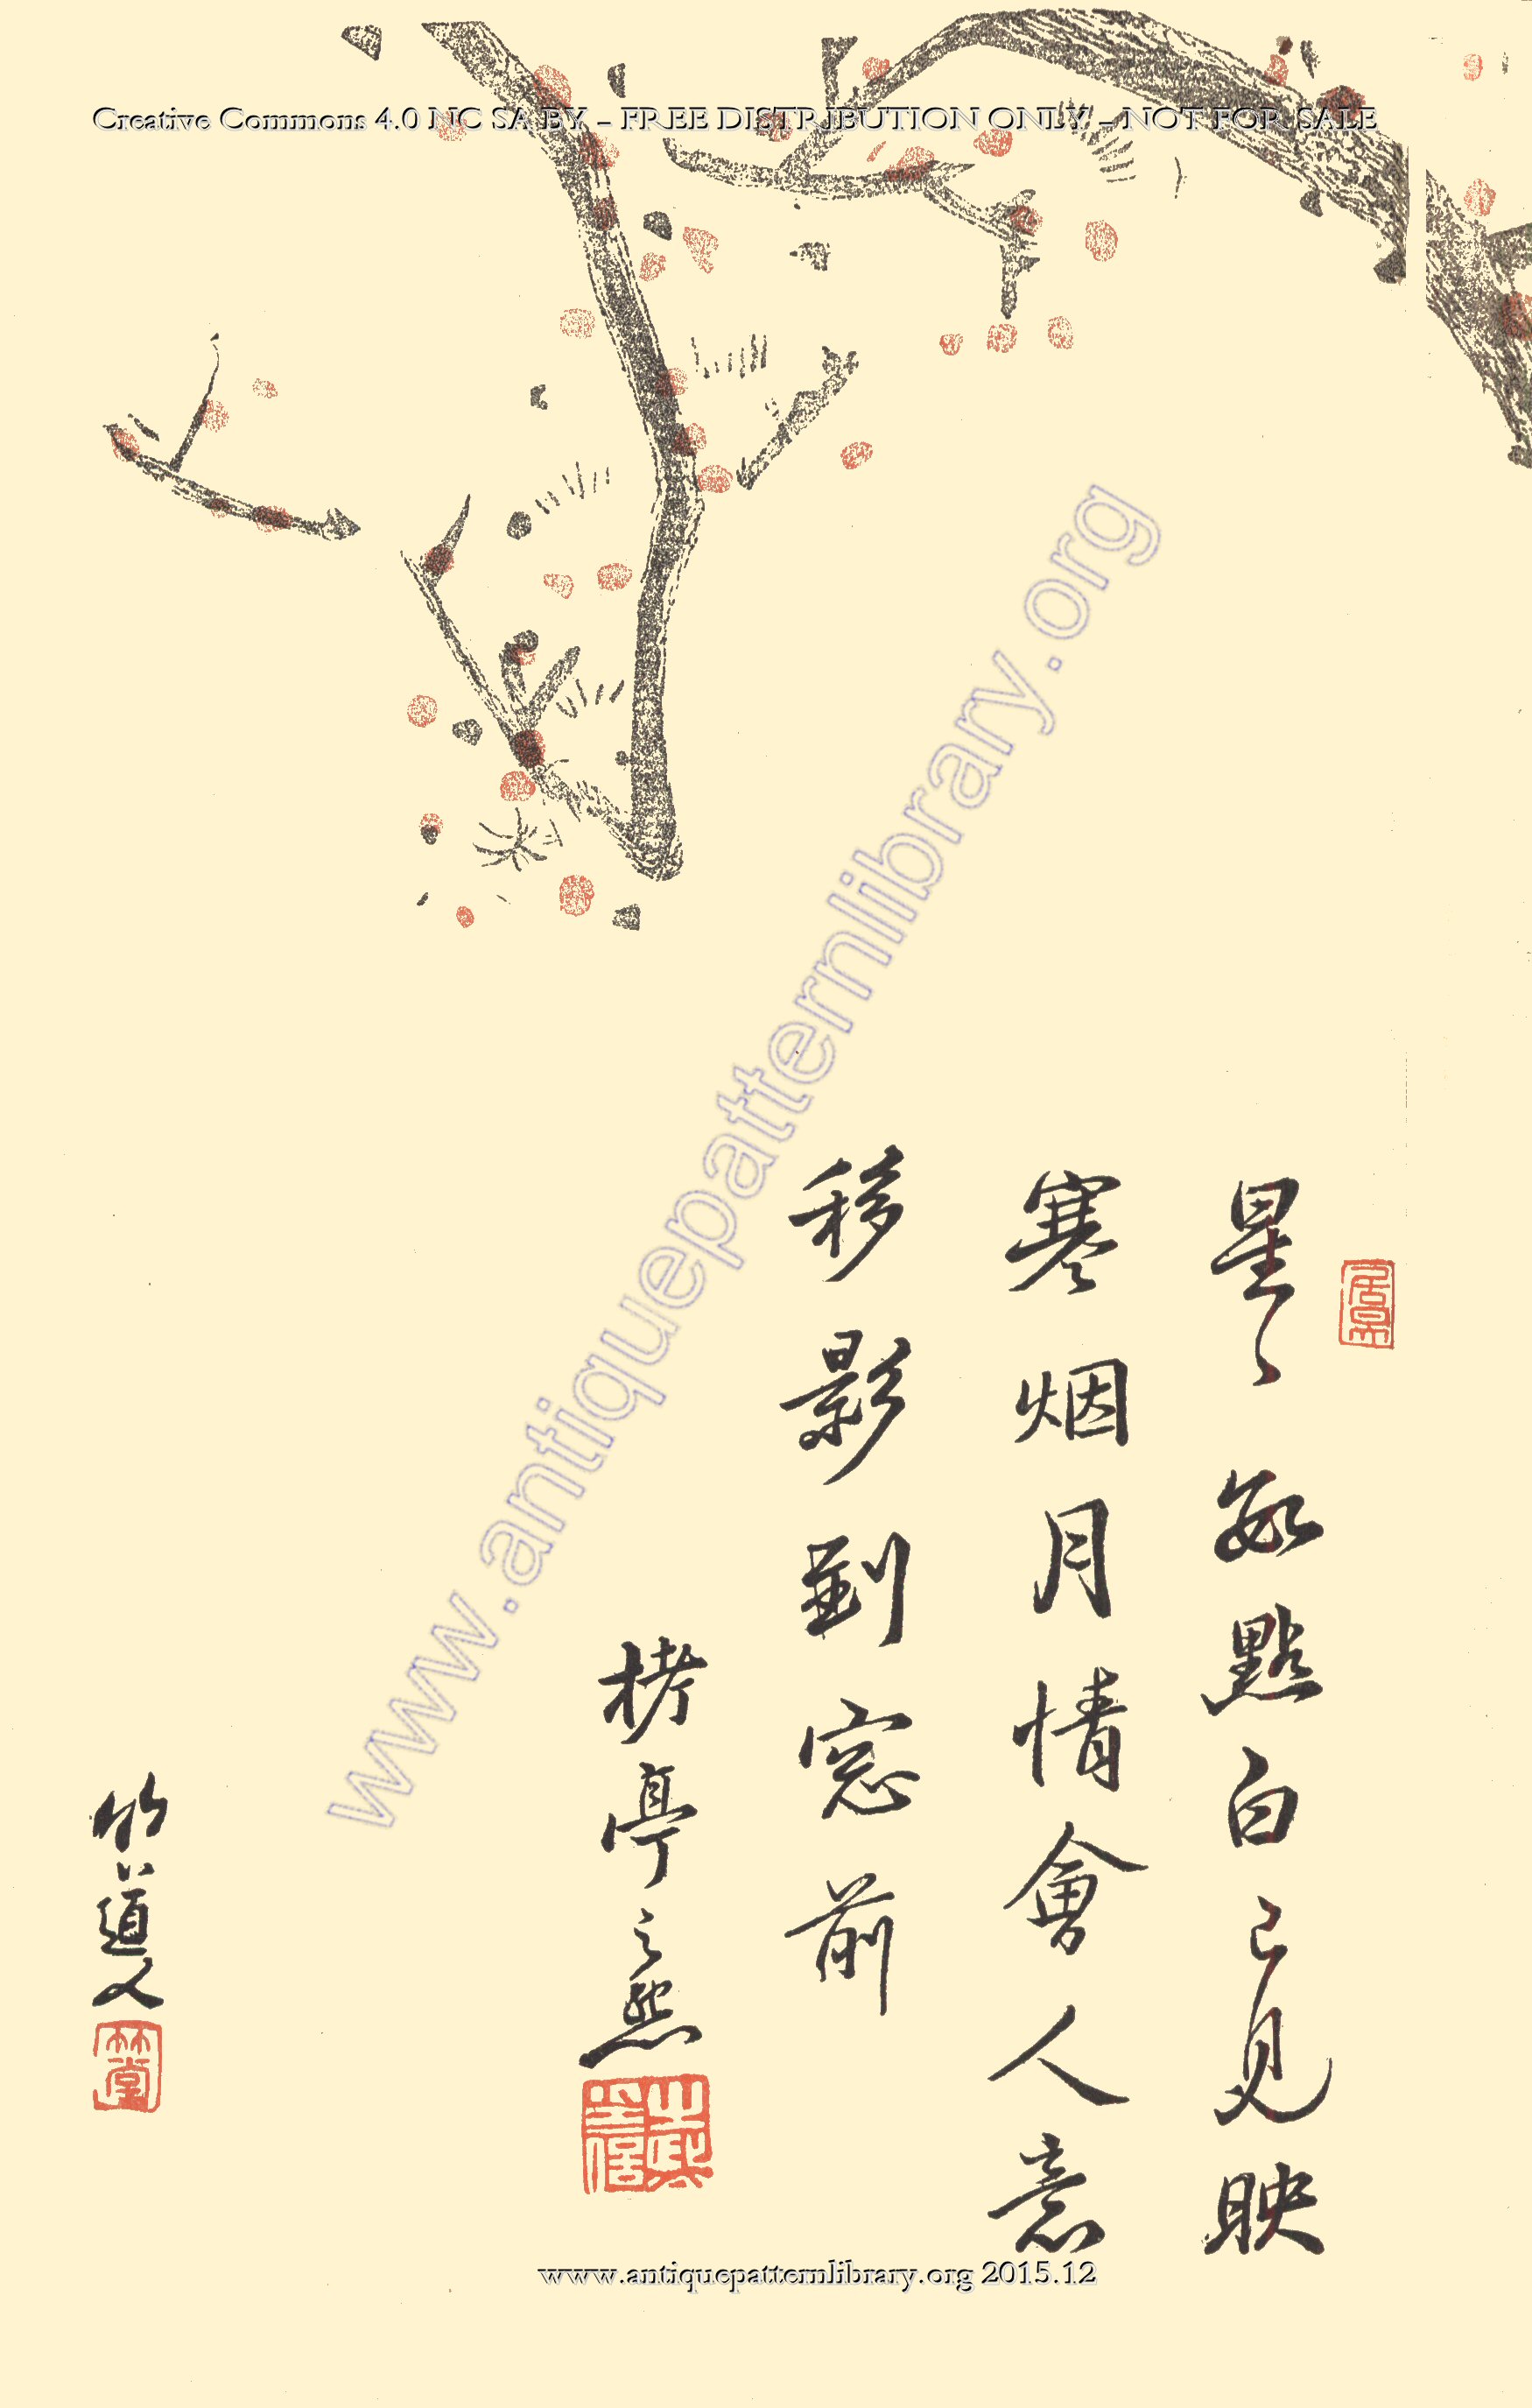 Creative Commons 4.0 NC SA BY – FREE DISTRIBUTION ONLY – NOT FOR SALE
星〻數點白已見映
寒烟月情會人意
移影到窓前
栲亭之熙
竹道人
竹堂
www.antiquepatternlibrary.org
www.antiquepatternlibrary.org 2015.12